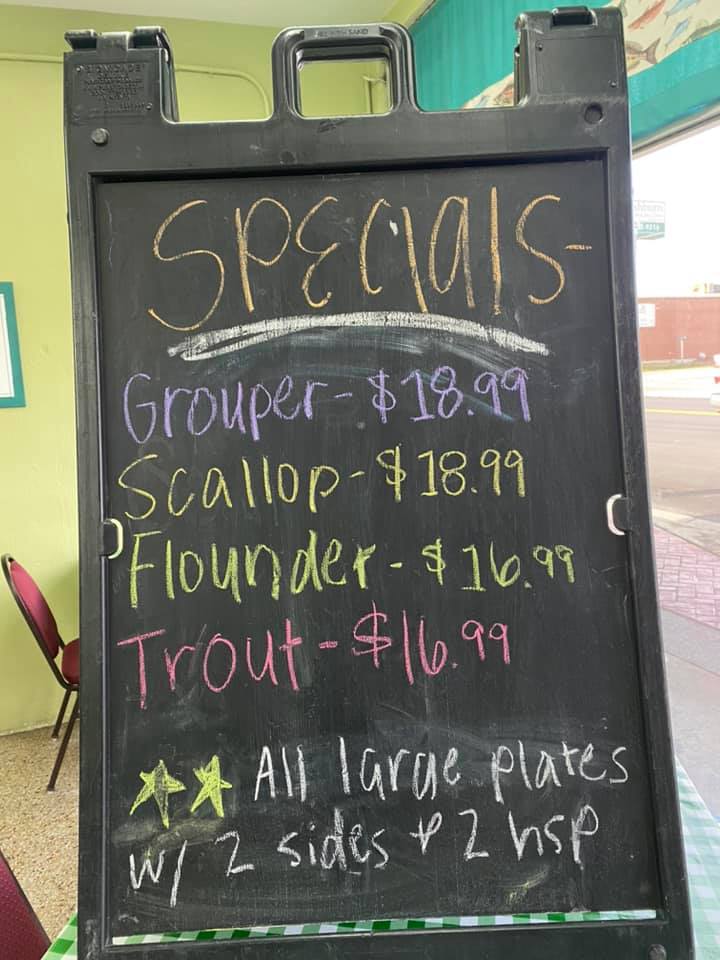 Specials
Grouper - $18.99
Scallop - $18.99
Flounder - $16.99
Trout - $16.99
All large plates
w/ 2 sides & 2 hsp